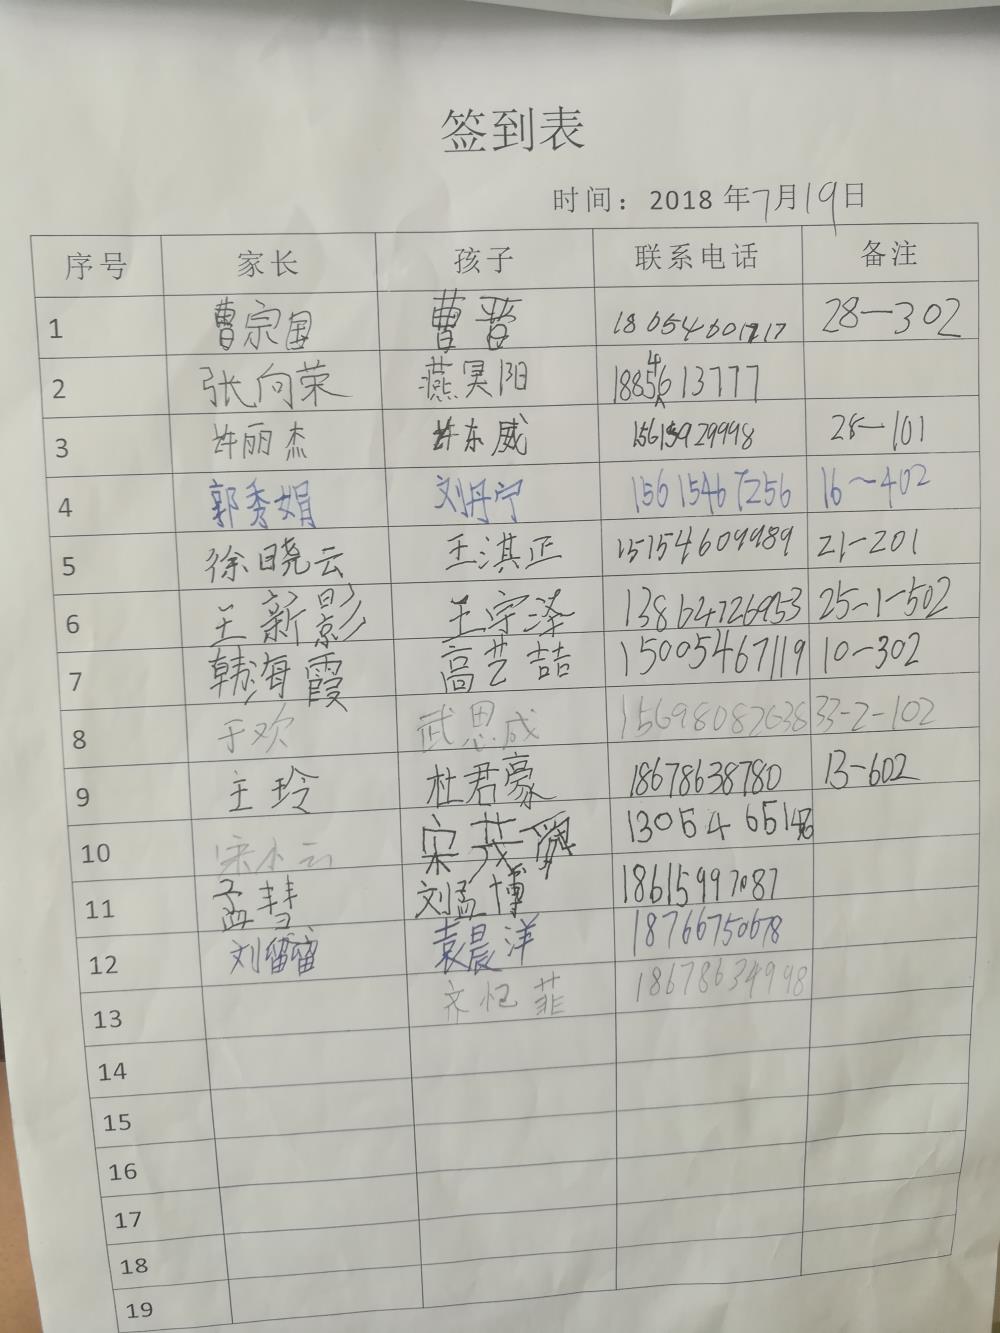 签到表
时间：2018年7月19日
序号 家长 孩子 联系电话 备注
1 曹宗国 曹晋 28-302
2 张向荣 燕昊阳 18854613777
3 许丽杰 许东威 15615929998 28-101
4 郭秀娟 刘丹宁 15615467256 16-402
5 徐晓云 王淇正 15154609989 21-201
6 王新影 王宇泽 13864726953 25-1-502
7 韩海霞 高艺喆 15005467119 10-302
8 于欢 武思成 15698087638 33-2-102
9 王玲 杜君豪 18678638780 13-602
10 宋小云 宋茂
11 孟慧 刘孟博 18615997087
12 刘 袁晨洋 18766750678
13 齐 菲 18678634998
14
15
16
17
18
19